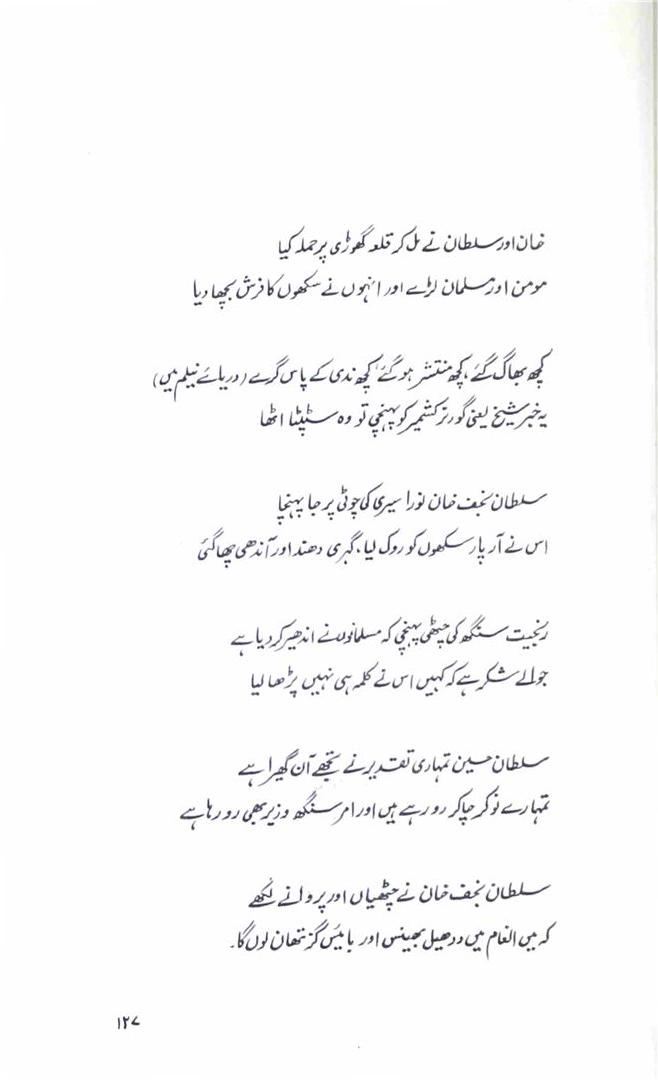 خان اور سلطان نے مل کر قلعہ گھوڑی پر حملہ کیا
مومن اور مسلمان لڑے اور انہوں نے سکھوں کا فرش بچھا دیا
کچھ بھاگ گئے، کچھ منتشر ہو گئے کچھ ندی کے پاس گرے (دریائے نیلم میں)
یہ خبر شیخ یعنی گورنر کشمیر کو پہنچی تو وہ سٹپٹا اٹھا
سلطان نجف خان نورا سیری کی چوٹی پر جا پہنچا
اس نے آر پار سکھوں کو روک لیا، گہری دھند اور آندھی چھا گئی
رنجیت سنگھ کی چٹھی پہنچی کہ مسلمانوں نے اندھیر کر دیا ہے
جوالے شکر ہے کہ کہیں اس نے کلمہ ہی نہیں پڑھا لیا
سلطان حسین تمہاری تقدیر نے تجھے آن گھیرا ہے
تمہارے نوکر چاکر رو رہے ہیں اور امر سنگھ وزیر بھی رو رہا ہے
سلطان نجف خان نے چٹھیاں اور پروانے لکھے
کہ میں انعام میں دودھیل بھینس اور بائیس گز تھان لوں گا۔
۱۲۷